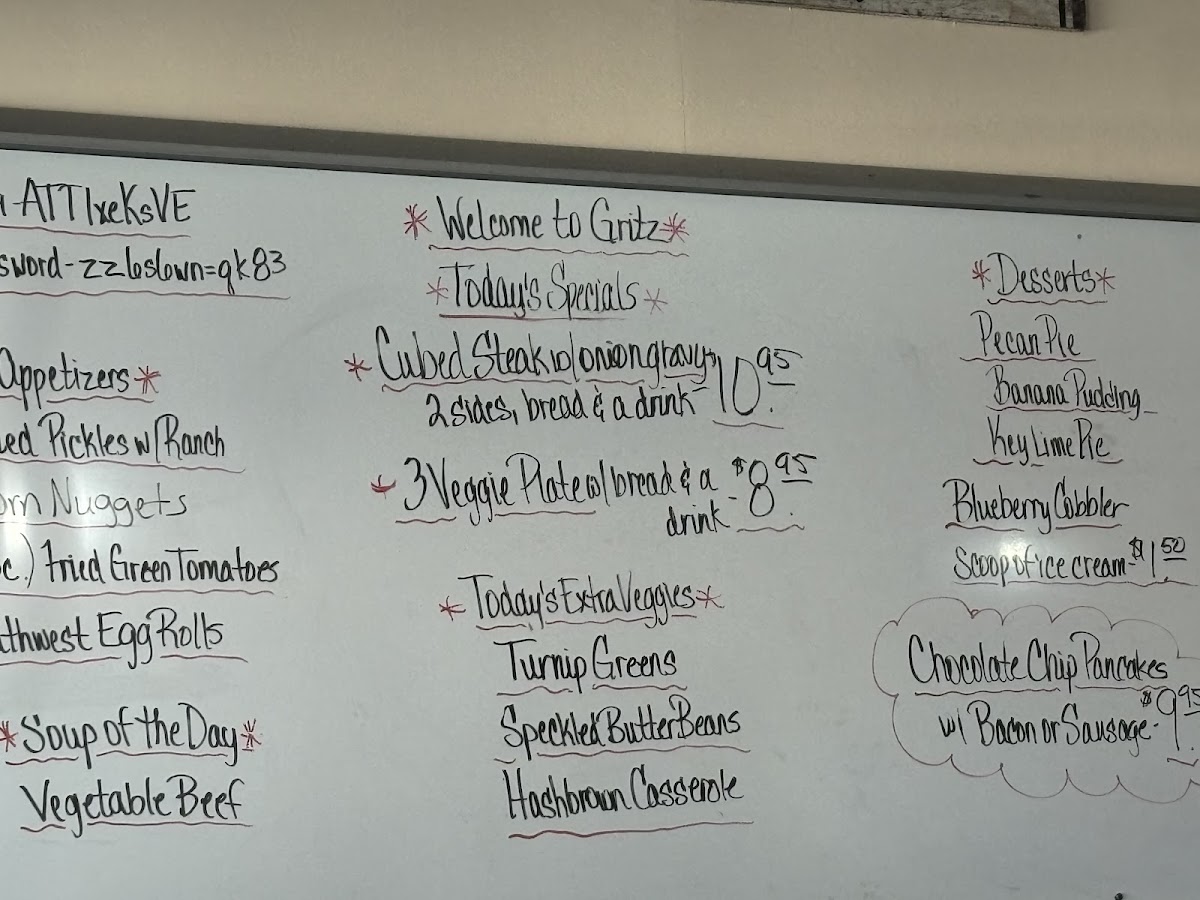 ATTIxeKsVE
sword-zz6slown=qk83
Appetizers*
ed Pickles w/Ranch
rn Nuggets
c.) Fried Green Tomatoes
thwest Egg Rolls
*Soup of the Day*
Vegetable Beef
*Welcome to Gritz*
*Today's Specials*
*Cubed Steak w/onion gravy,
2 sides, bread & a drink - 10.95
*3 Veggie Plate w/bread & a
drink - $8.95
*Today's Extra Veggies*
Turnip Greens
Speckled Butter Beans
Hashbrown Casserole
*Desserts*
Pecan Pie
Banana Pudding
Key Lime Pie
Blueberry Cobbler
Scoop of ice cream-$1.50
Chocolate Chip Pancakes
w/ Bacon or Sausage-$9.95